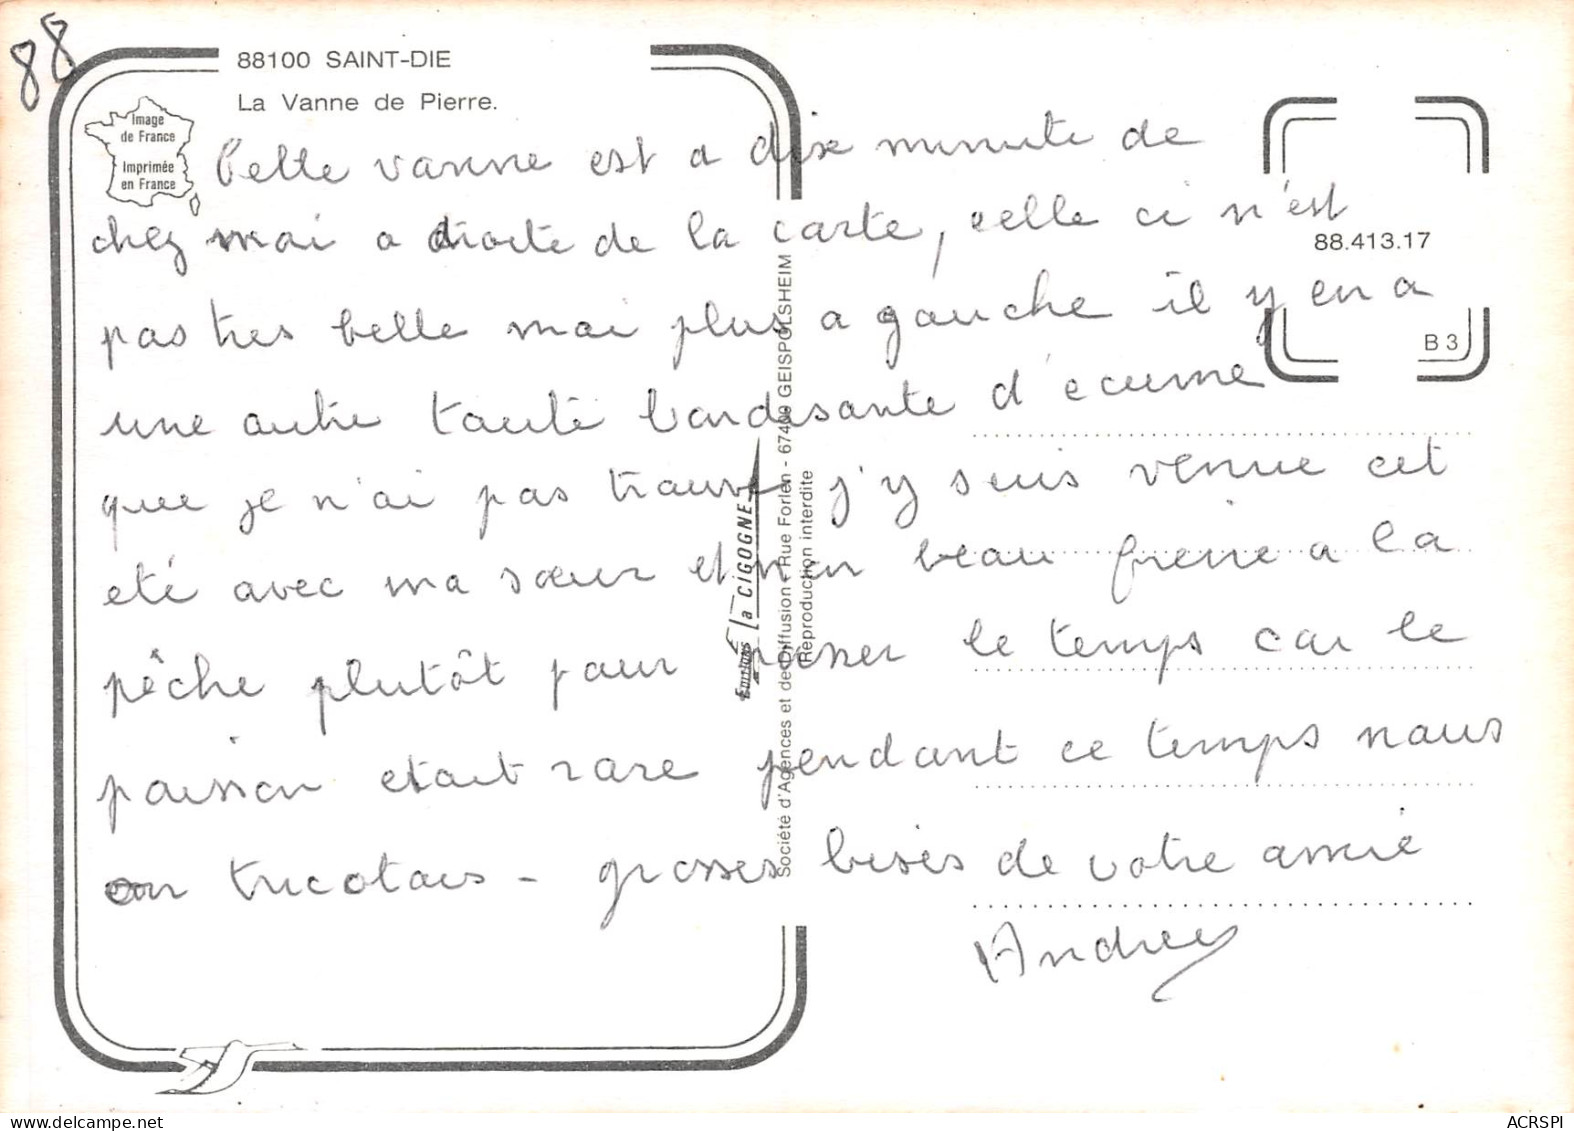 88
88100 SAINT-DIE
La Vanne de Pierre.
Image
de France
Imprimée
en France
Cette vanne est a dix minute de
chez moi a droite de la carte, celle ci n'est
88.413.17
pas tres belle mai plus a gauche il y en a
B 3
une autre toute bondisante d'ecume
que je n'ai pas trouve j'y suis venue cet
eté avec ma sœur et mon beau frere a la
pêche plutôt pour passer le temps car le
poisson etait rare pendant ce temps nous
on tricotais - grosses bises de votre amie
Andree
Editions la CIGOGNE
Société d'Agences et de Diffusion - Rue Forlen - 67400 GEISPOLSHEIM
Reproduction interdite
ACRSPI